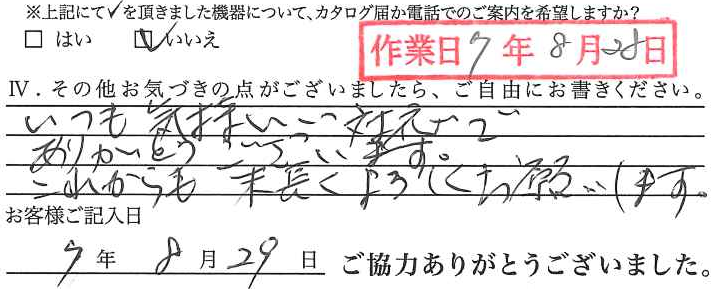 ※上記にて✓を頂きました機器について、カタログ届か電話でのご案内を希望しますか?
□ はい ☑ いいえ
作業日 7 年 8 月 28 日
Ⅳ．その他お気づきの点がございましたら、ご自由にお書きください。
いつも気持いいご対応で
ありがとうございます。
これからも末長くよろしくお願いします。
お客様ご記入日
7 年 8 月 29 日 ご協力ありがとうございました。